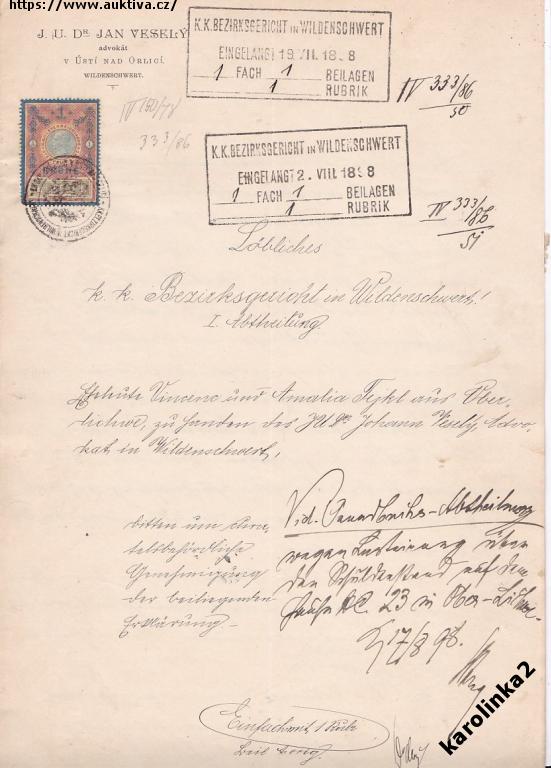 https://www.auktiva.cz/
J. U. DR. JAN VESELÝ
advokát
V ÚSTÍ NAD ORLICÍ.
WILDENSCHWERT.
K.K.BEZIRKSGERICHT IN WILDENSCHWERT
EINGELANGT 19. VII. 18 8
1 FACH 1 BEILAGEN
1 RUBRIK
IV 333/86
50
333/86
K.K.BEZIRKSGERICHT IN WILDENSCHWERT
EINGELANGT 2. VIII 1898
1 FACH 1 BEILAGEN
1 RUBRIK
IV 333/86
51
Löbliches
k. k. Bezirksgericht in Wildenschwert!
I. Abtheilung
Eheleute Vincenc und Amalia Tejkl aus Ober-
lichwe, zu Handen des JUDr Johann Veselý, Advo-
kat in Wildenschwert,
bitten um
Genehmigung
der beiliegenden
Erklärung
Vid. Grundbuchs-Abtheilung
wegen über
den Schuldenstand auf dem
Hause NC. 23 in Ober-
17/8 98.
Einfach mit 1 Rubr
karolinka2